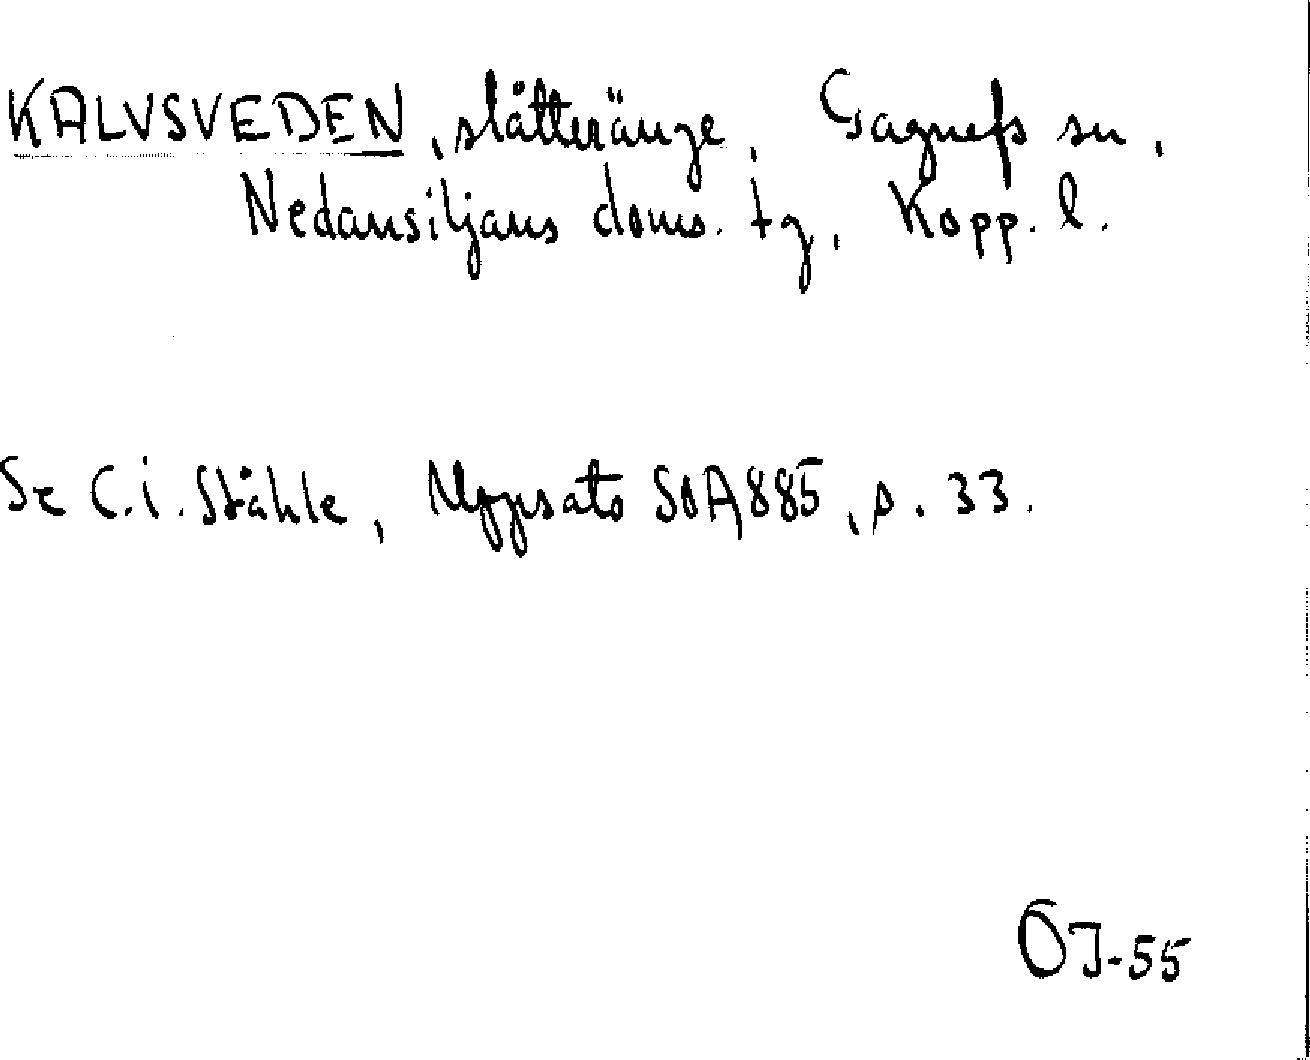 KALVSVEDEN, slåtteränge, Gagnefs sn,
Nedansiljans doms. tg, Kopp. l.
Se C.I. Ståhle, Uppsats SOA885, s. 33.
OJ-55